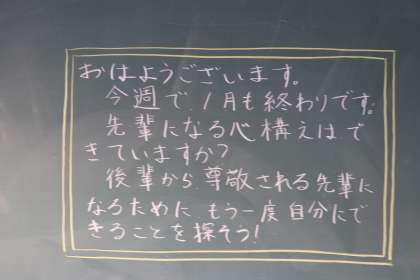 おはようございます。
今週で、1月も終わりです。
先輩になる心構えはで
きていますか?
後輩から尊敬される先輩に
なるために、もう一度自分にで
きることを探そう!